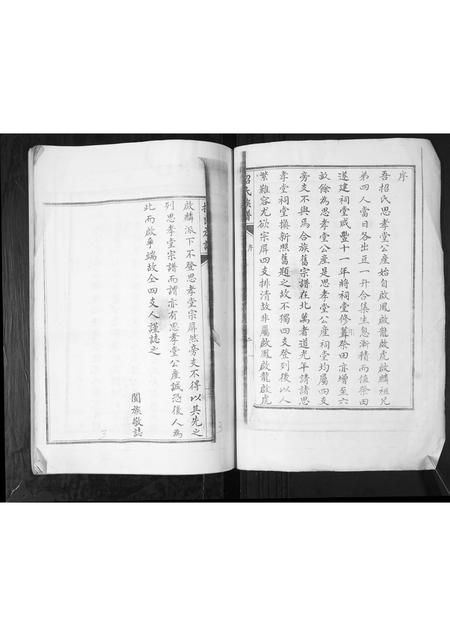 序
吾招氏思孝堂公產始自啟鳳啟龍啟虎啟麟祖兄
弟四人當日各出豆一升合集生息漸積而值祭田
遂建祠堂咸豐十一年將祠堂修葺祭田亦增至六
畝餘為思孝堂公產是思孝堂公產祠堂均屬四支
旁支不與焉合族舊宗譜在北萬者道光年請請思
孝堂祠堂換新照舊題之故不獨四支登列後以人
繁難容尤欲宗屏四支排清故非屬啟鳳啟龍啟虎
啟麟派下不登思孝堂宗屏然旁支不得以其先之
列思孝堂宗譜而謂亦有思孝堂公產誠恐後人為
此而啟爭端故仝四支人謹誌之
闔族敬誌
招氏族譜
序